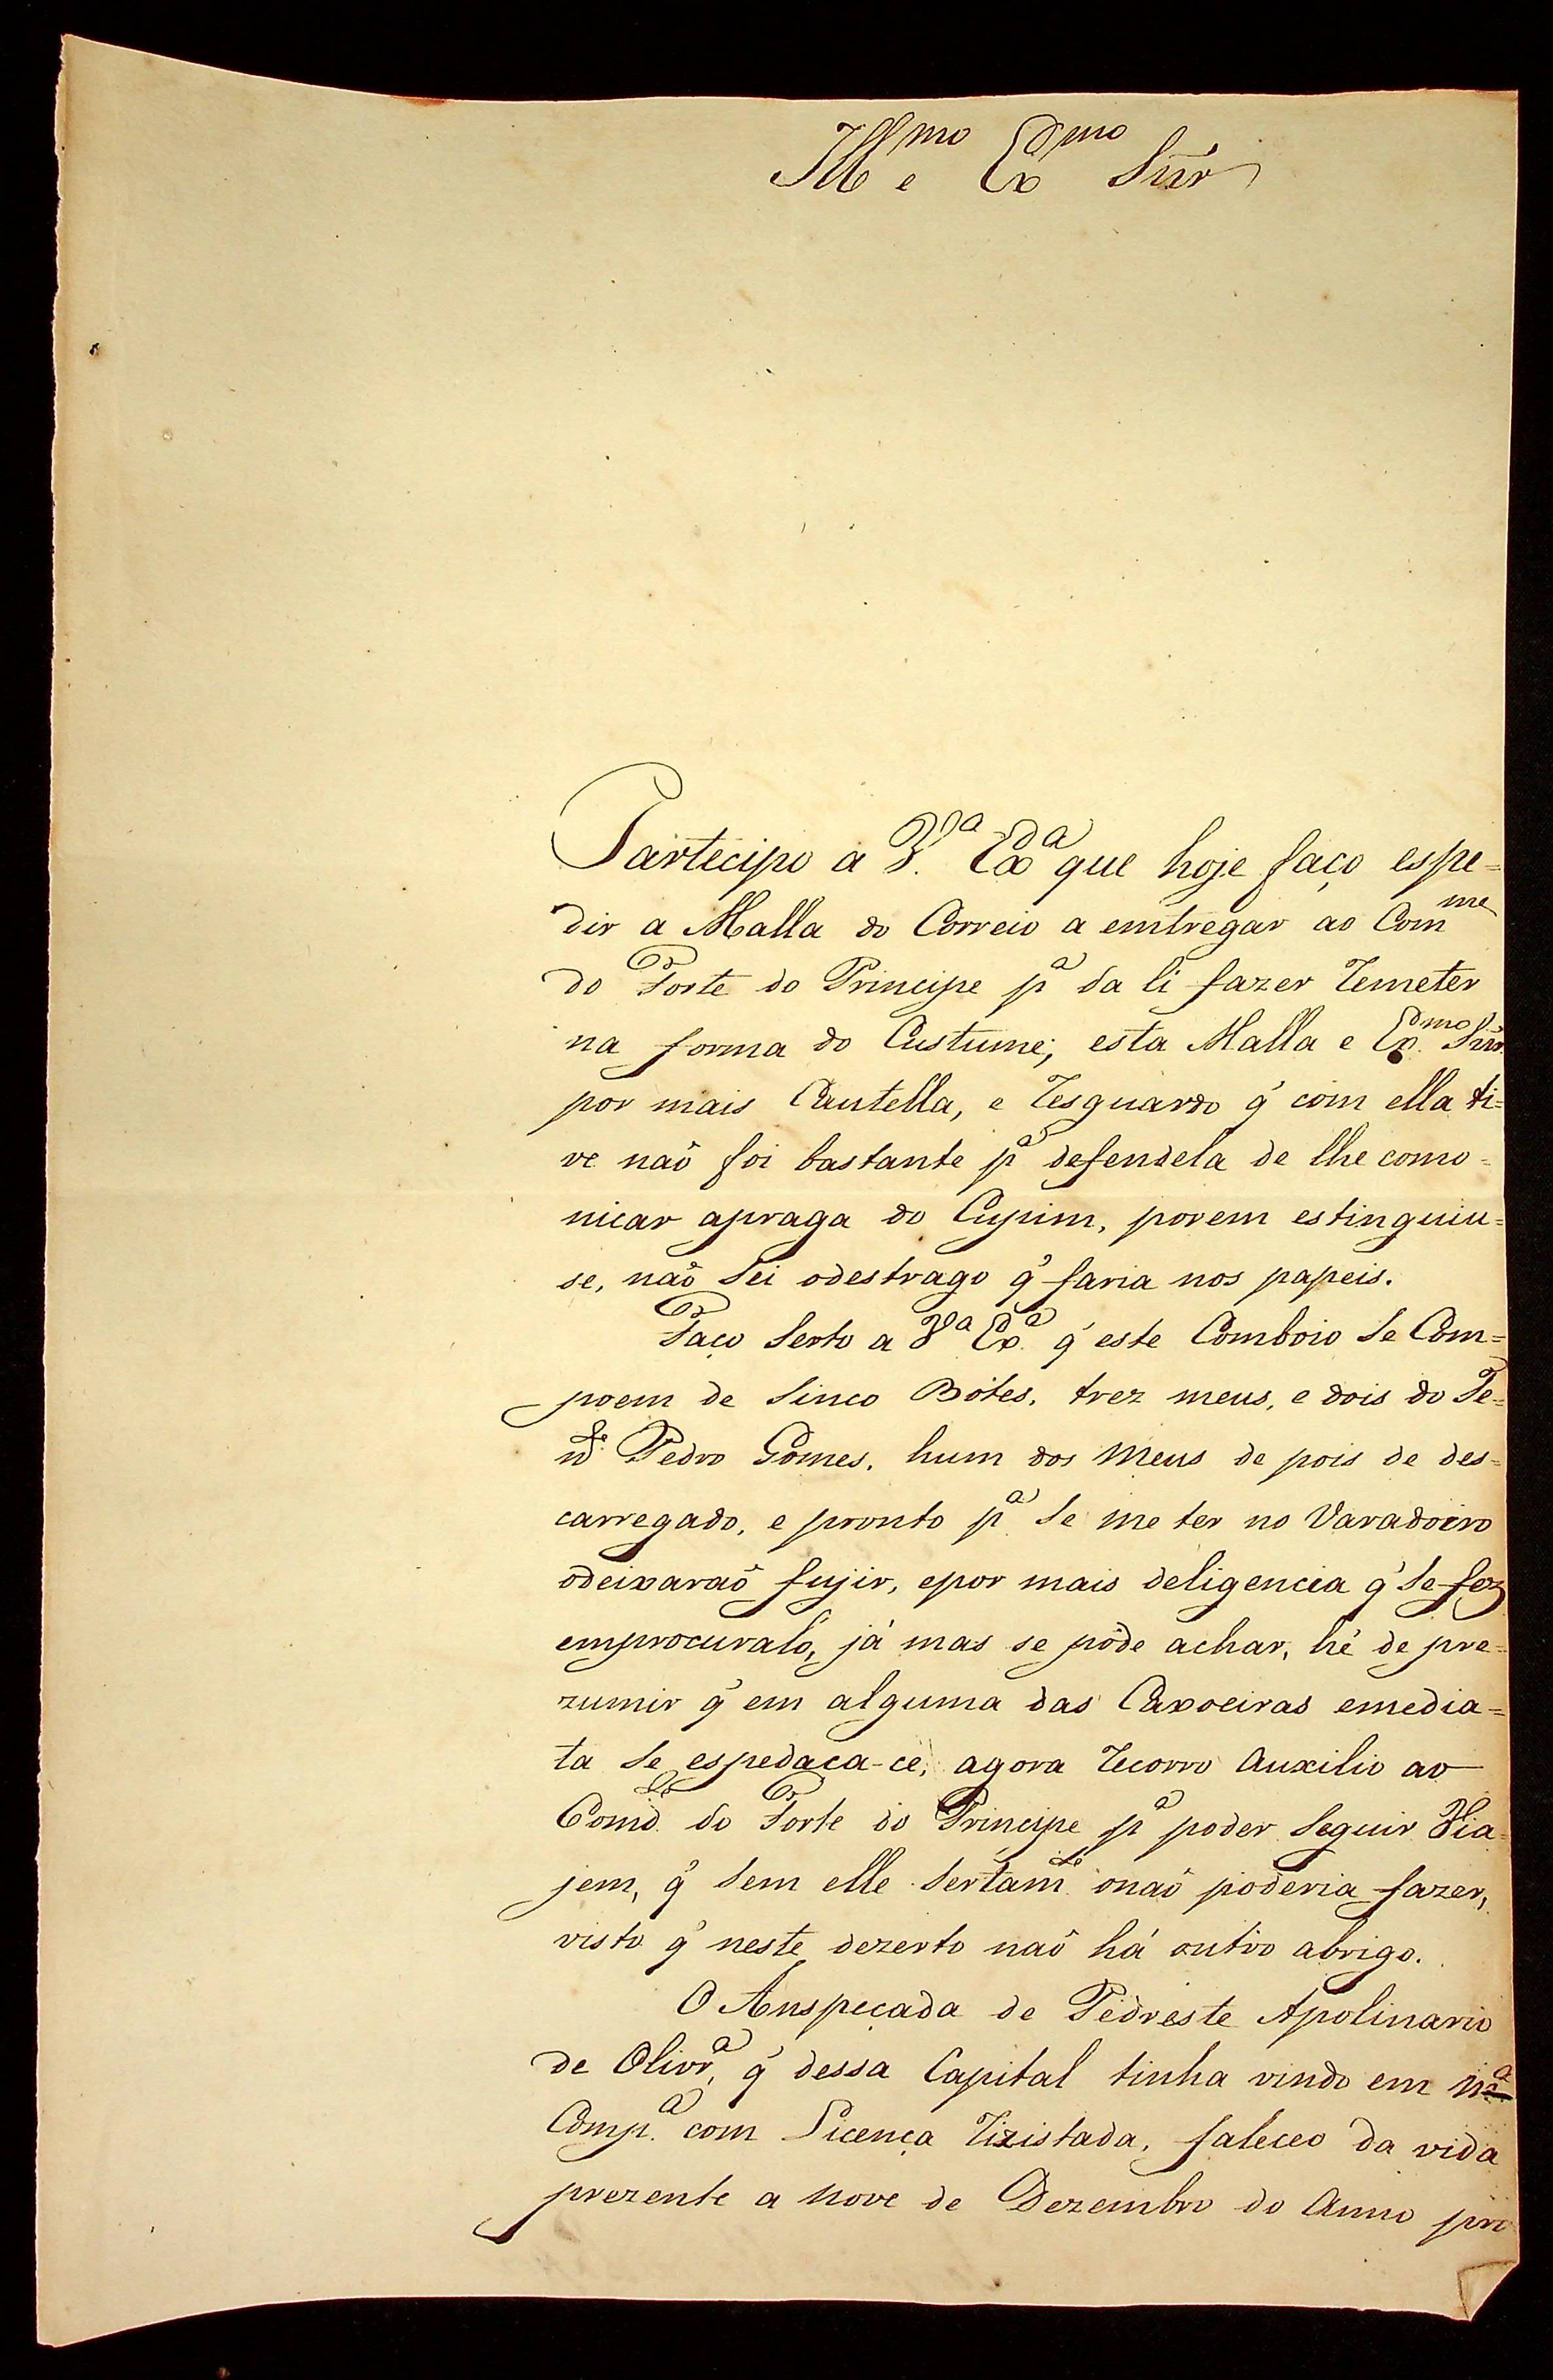 Ill.mo e Ex.mo Snr.
Partecipo a V.ª Ex.ª que hoje faço espe=
dir a Malla do Correio a emtregar ao Com.me
do Forte do Principe p.ª da li fazer Remeter
na forma do Custume; esta Malla e Ex.mo Snr.
por mais Cautella, e Resguardo q̃ com ella ti=
ve naõ foi bastante p.ª defendela de lhe como=
nicar apraga do Cupim, porem estinguiu=
se, naõ Sei odestrago q̃ faria nos papeis.
Faço Serto a V.ª Ex.ª q̃ este Comboio Se Com=
poem de Sinco Bótes, trez meus, e dois do Te=
n.te Pedro Gomes, hum dos Meus de pois de des=
carregado, e pronto p.ª Se me ter no Varadoiro
odeixaraõ fujir, epor mais deligencia q̃ Se fez
emprocuralo, já mas se pôde achar, hé de pre=
zumir q̃ em alguma das Caxoeiras emedia=
ta Se espedaca-ce, agora Recorro Auxilio ao
Comd.te do Forte do Principe p.ª poder Seguir Via=
jem, q̃ Sem elle Sertam.te onaõ poderia fazer,
visto q̃ neste dezerto naõ há outro abrigo.
O Anspeçada de Pedreste Apolinario
de Olivr.ª, q̃ dessa Capital tinha vindo em m.ª
Comp.ª com Licença Rizistada, faleceo da vida
prezente a Nove de Dezembro do Anno pro